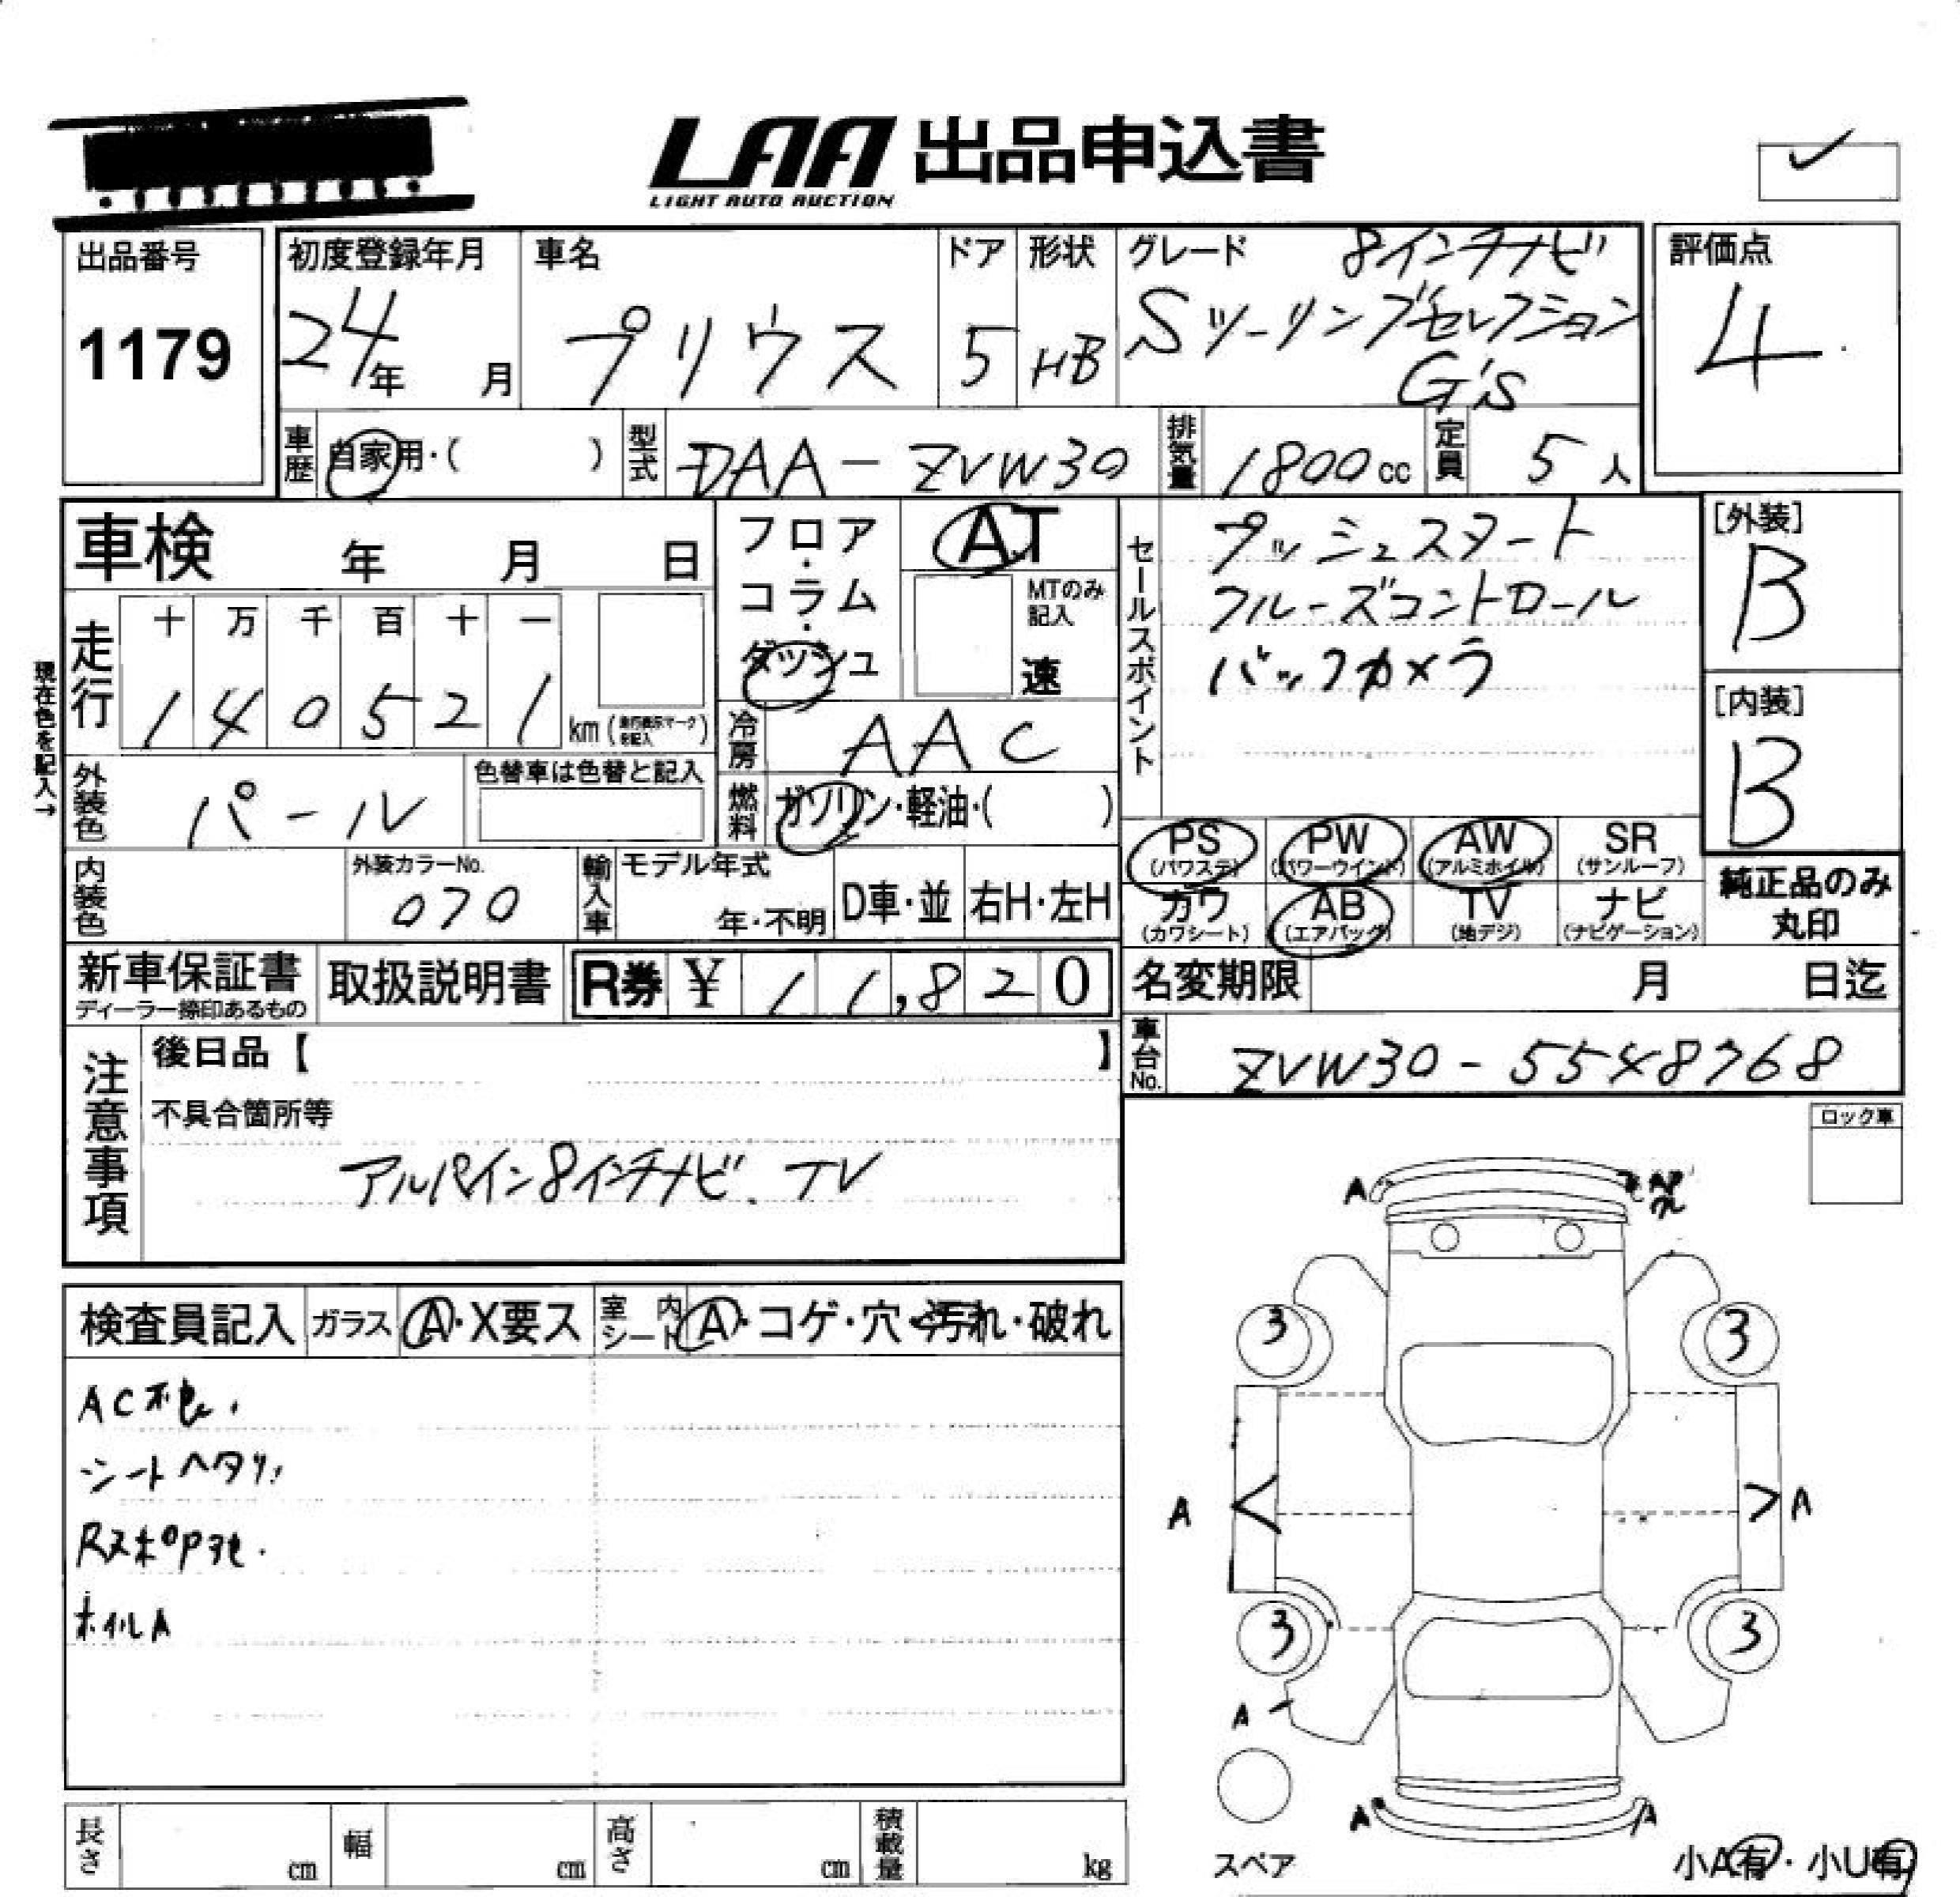 LAA 出品申込書
LIGHT AUTO AUCTION
出品番号
1179
初度登録年月
24年 月
車名
プリウス
ドア
5
形状
HB
グレード 8インチナビ
Sツーリングセレクション
G's
評価点
4
車歴 自家用・( )
型式 DAA-ZVW30
排気量 1800cc
定員 5人
車検 年 月 日
フロア・コラム・ダッシュ
AT
MTのみ記入
速
セールスポイント
プッシュスタート
クルーズコントロール
バックカメラ
[外装]
B
[内装]
B
現在色を記入→
走行
十 万 千 百 十 一
1 4 0 5 2 1 km (走行表示マークを記入)
冷房 AAC
外装色 パール
色替車は色替と記入
燃料 ガソリン・軽油・( )
内装色
外装カラーNo.
070
輸入車
モデル年式
年・不明
D車・並
右H・左H
PS (パワステ)
PW (パワーウインド)
AW (アルミホイル)
SR (サンルーフ)
カワ (カワシート)
AB (エアバッグ)
TV (地デジ)
ナビ (ナビゲーション)
純正品のみ
丸印
新車保証書
ディーラー捺印あるもの
取扱説明書
R券 ¥ 11,820
名変期限 月 日迄
車台No. ZVW30-5548768
注意事項
後日品【 】
不具合箇所等
アルパイン8インチナビ、TV
ロック車
検査員記入
ガラス A・X要ス
室内シート A・コゲ・穴・汚れ・破れ
AC不良.
シートヘタリ.
ホイルA
A
A
3
3
A
A
3
3
A
A
A
スペア
小A有・小U有
長さ cm
幅 cm
高さ cm
積載量 kg